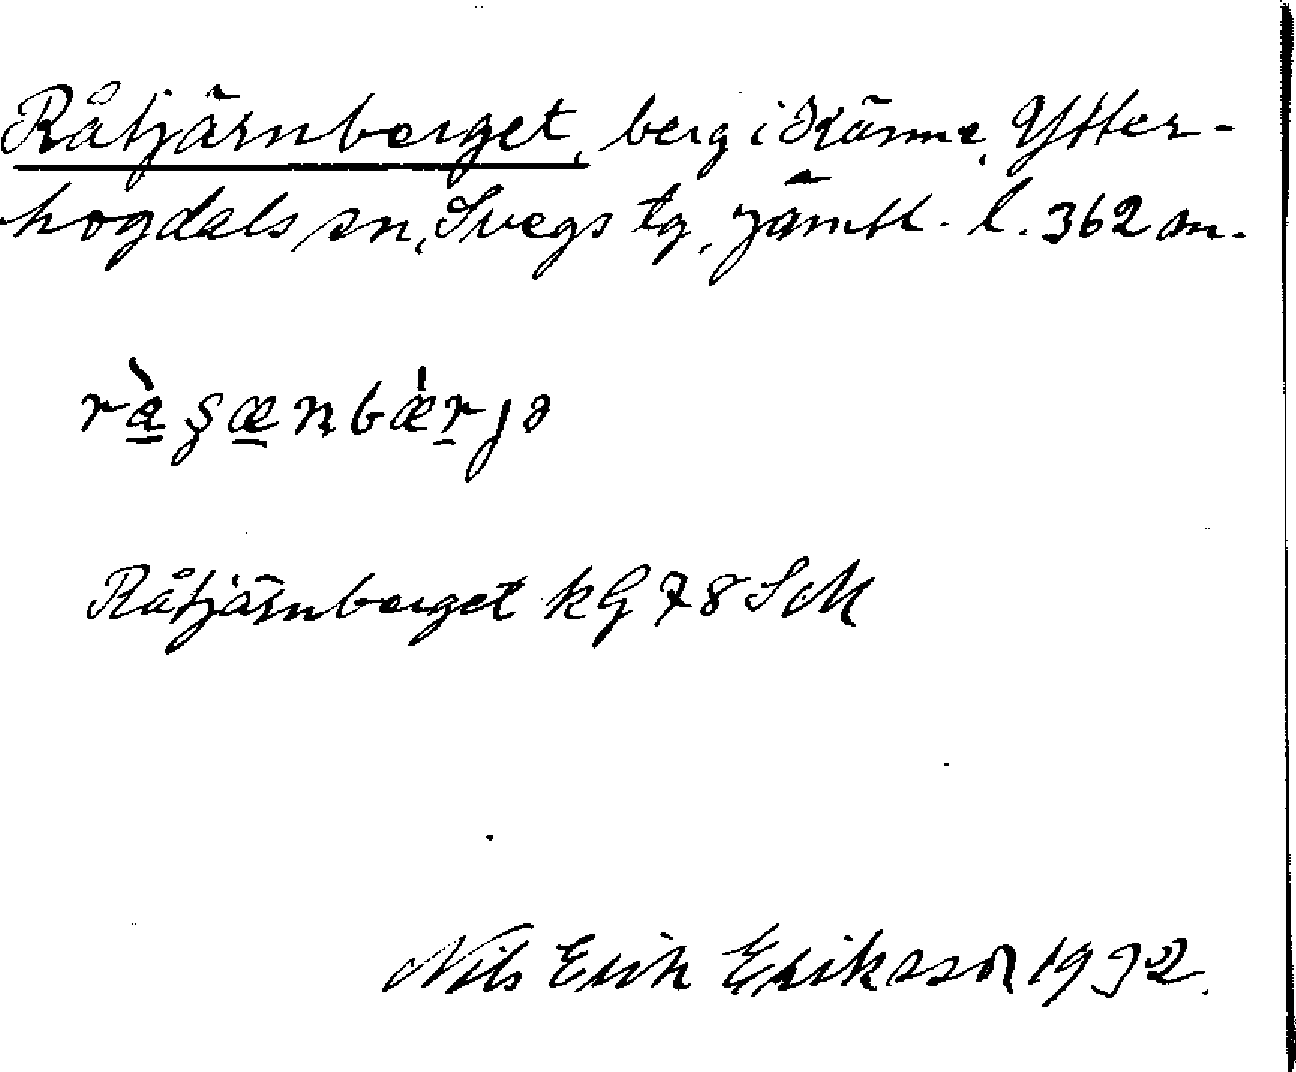 Råtjärnberget, berg i Känne, Ytter-
hogdals sn, Svegs tg, Jämtl. l. 362 m.
ràʂænbǽrjə
Råtjärnberget kG 78 SM
Nils Erik Eriksson 1992.